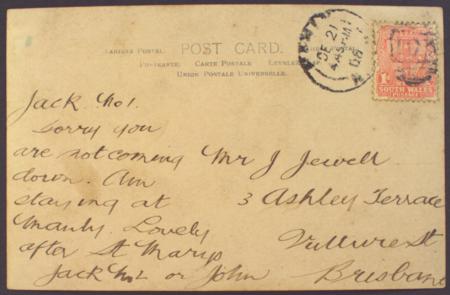 POST CARD.
CARTE POSTALE
UNION POSTALE UNIVERSELLE.
DE 21
08
SOUTH WALES
POSTAGE
Jack No 1.
Sorry you
are not coming
down. Am
staying at
Manly. Lovely
after St Marys
Jack No 2 or John
Mr J Jewell
3 Ashley Terrace
St
Brisbane